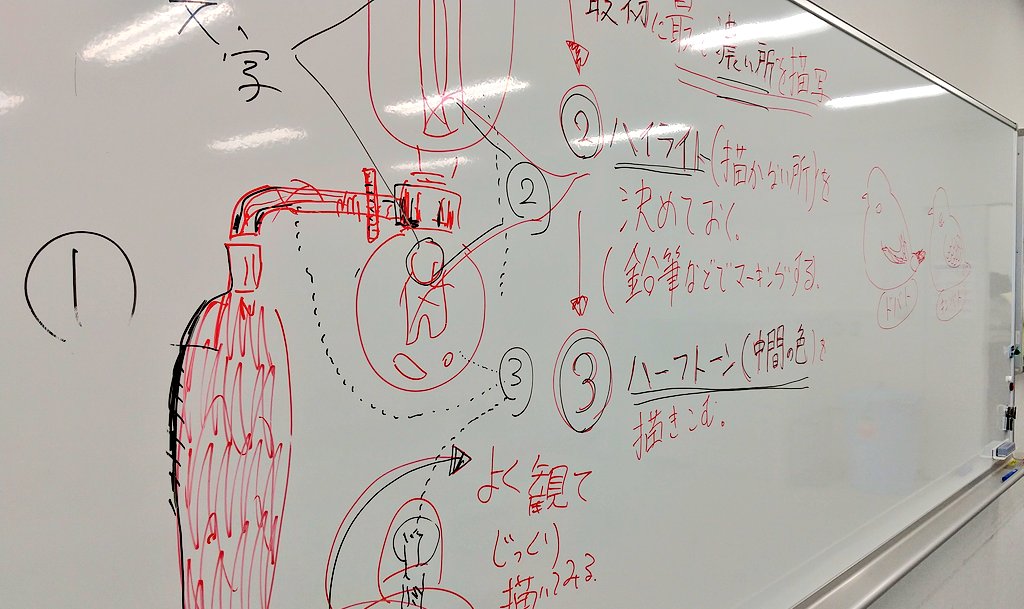 文字
最初に最も濃い所を描写
②ハイライト(描かない所)を
決めておく。
(鉛筆などでマーキングする。
③ハーフトーン(中間の色)を
描きこむ。
①
②
③
よく観て
じっくり
描いてみる